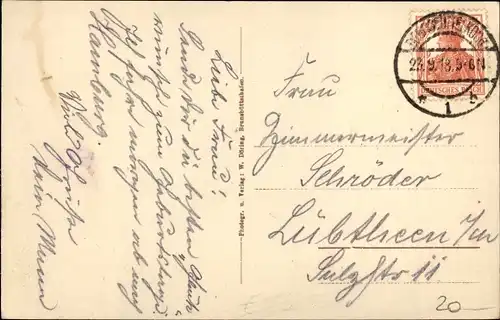 Liebe Frau!
Sende Dir die besten Glück
wünsche zum Geburtstage.
Ich fahre morgen ab nach
Hamburg.
Viele Grüße
dein Mann
Photogr. u. Verlag: W. Döring, Brunsbüttelhafen.
DEUTSCHES REICH
Frau
Zimmermeister
Schröder
Lübtheen i/M
Sulzstr 11
20